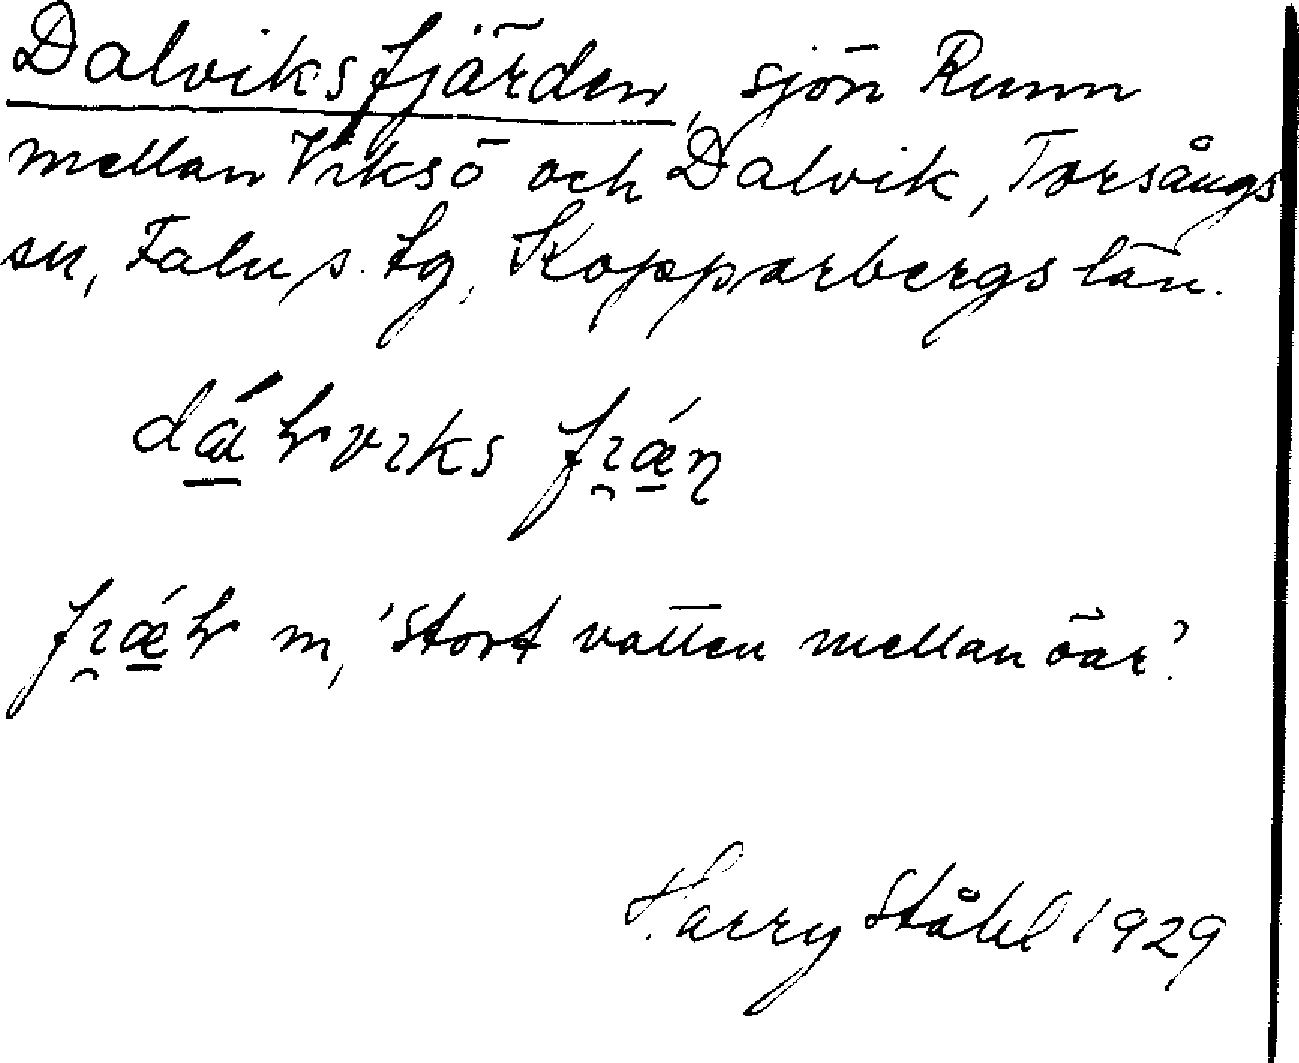 Dalviksfjärden, sjön Runn
mellan Viksö och Dalvik, Torsångs
sn, Falu s. tg, Kopparbergs län.
dáɽvıks fı̯ǽɳ
fı̯ǽɽ m, 'stort vatten mellan öar'.
Harry Ståhl 1929